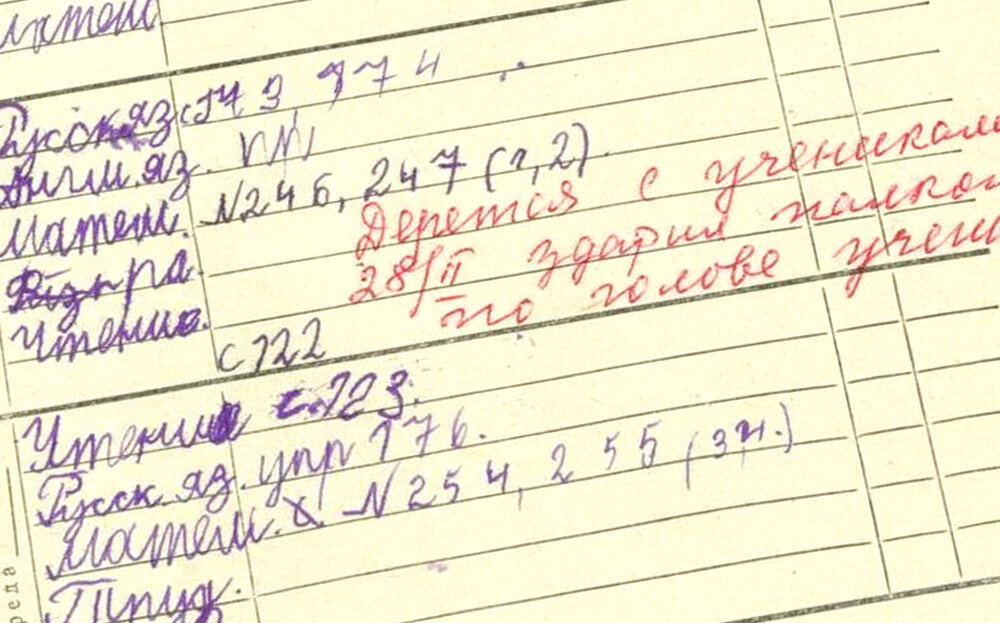 Матем
Русск. яз. с 174 3, 174
Англ. яз. VIII
Матем. N246, 247 (1,2).
Дерется с ученикам
Физ-ра
28/II здарил палкой
Чтение. по голове учени
с 122
Чтение с. 123.
Русск. яз. упр 176.
Матем. N254, 255 (3,4.)
Труд.
реда